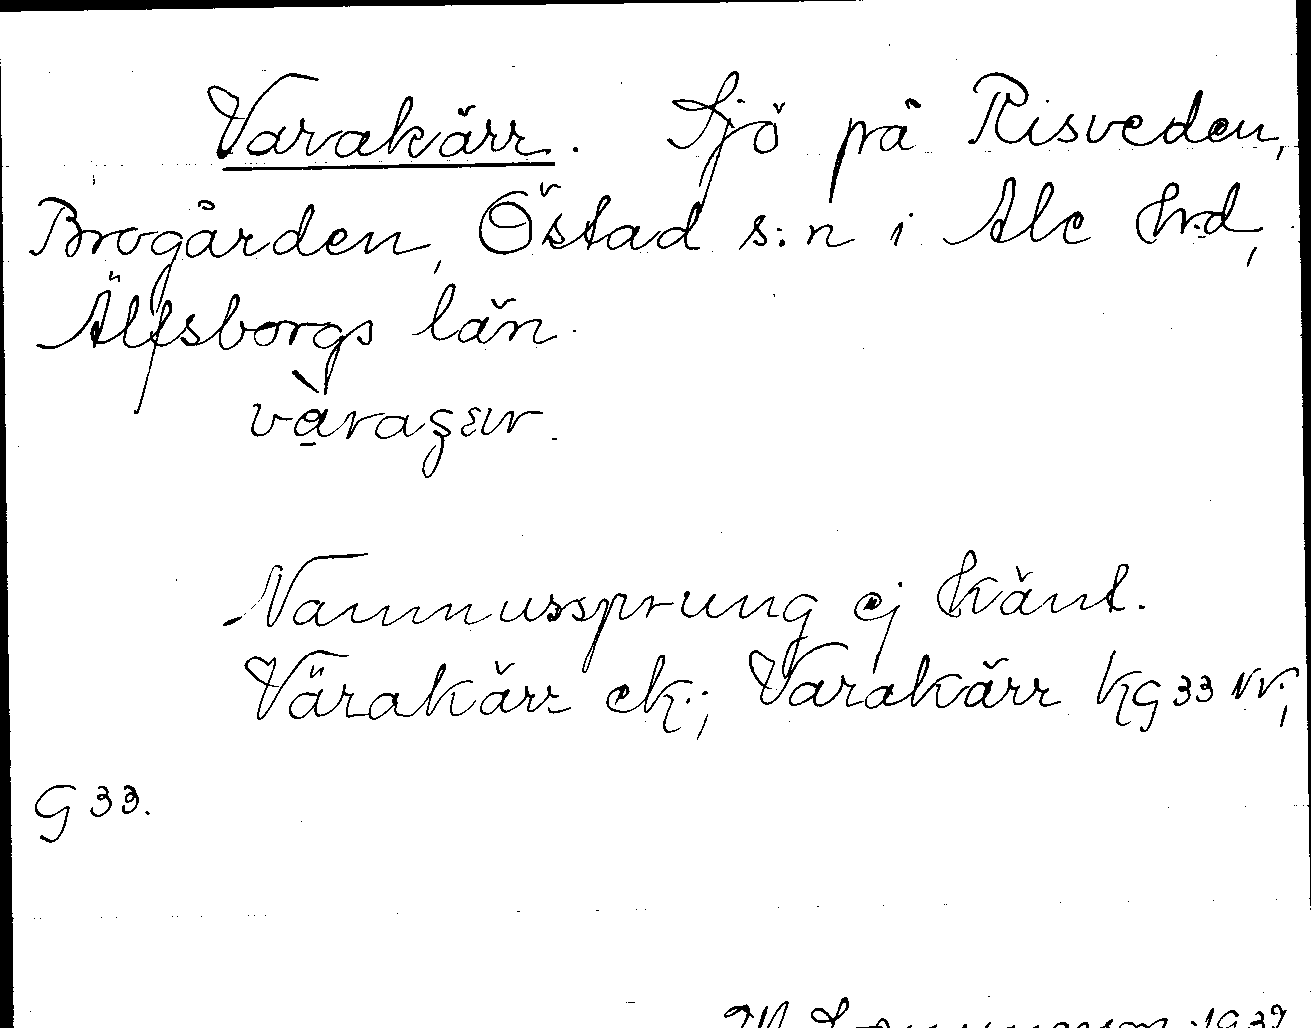 Varakärr. Sjö på Risveden,
Brogården, Östad s:n i Ale hrd,
Älfsborgs län.
Namnursprung ej känt.
Värakärr ek.; Varakärr KG 33 NV;
G 33.
1932